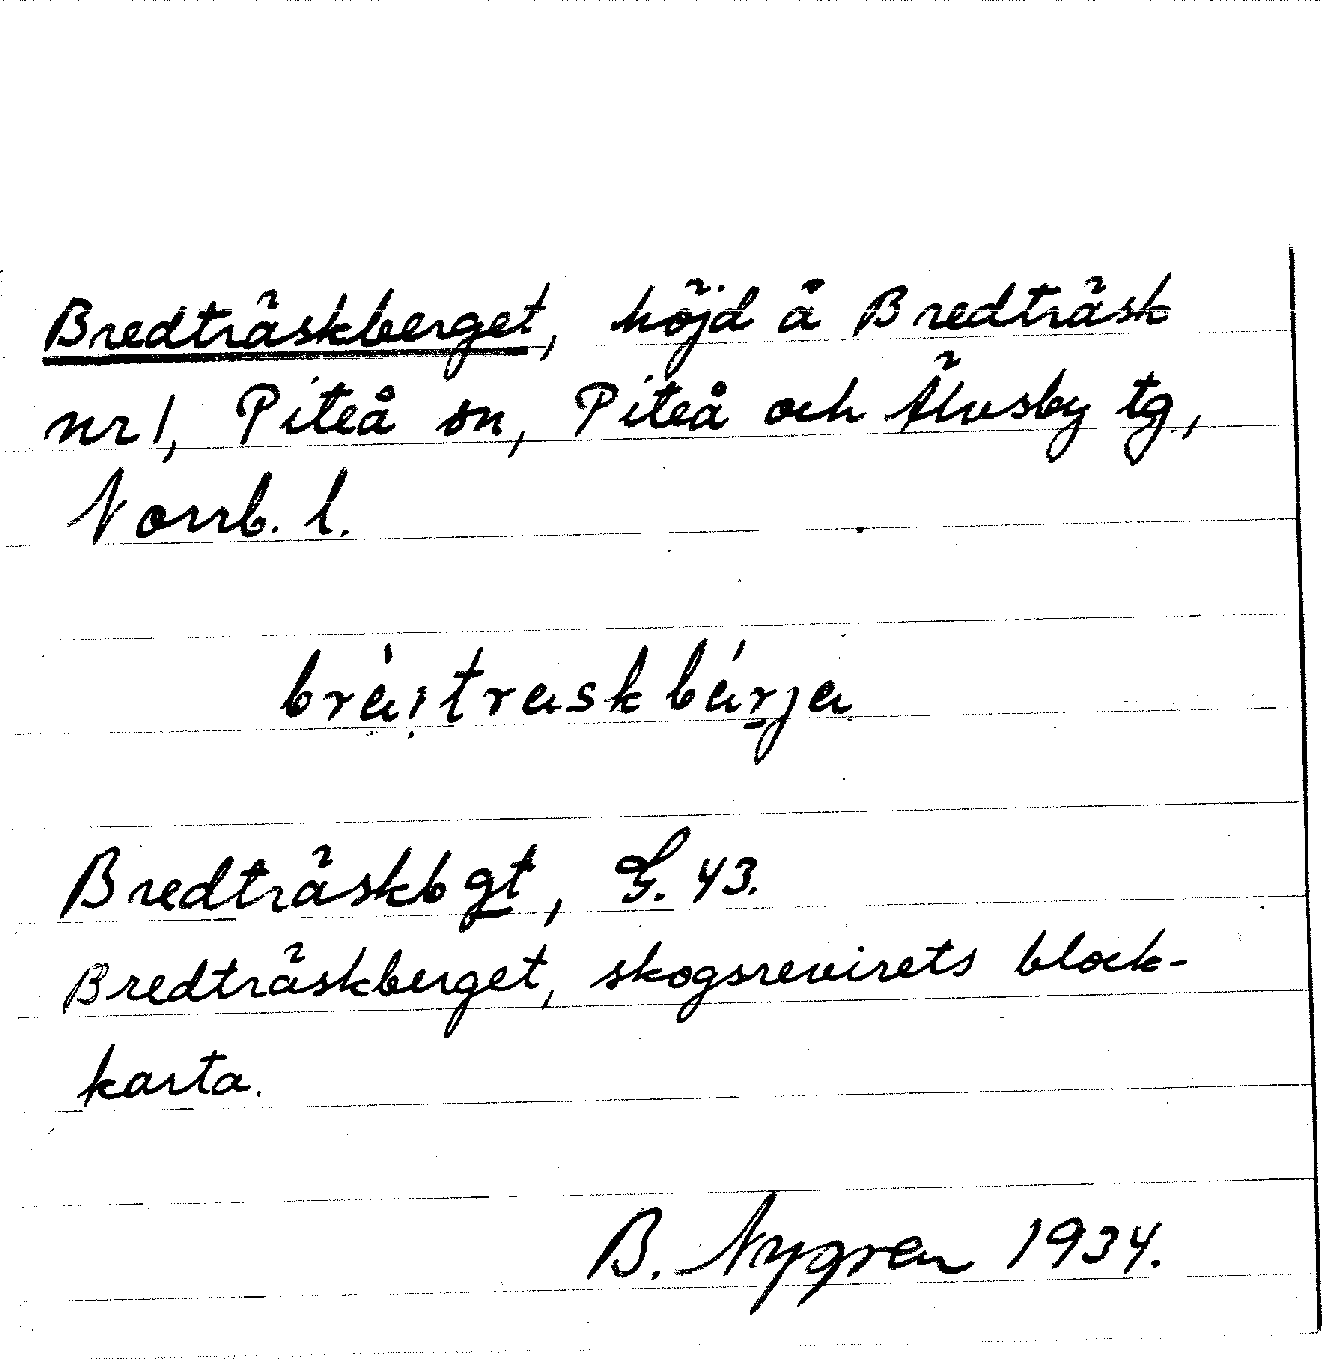 Bredträskberget, höjd å Bredträsk
nr 1, Piteå sn, Piteå och Älvsby tg,
Norrb. l.
Bredträskbgt, G. 43.
Bredträskberget, skogsrevirets block-
karta.
B. Nygren 1934.